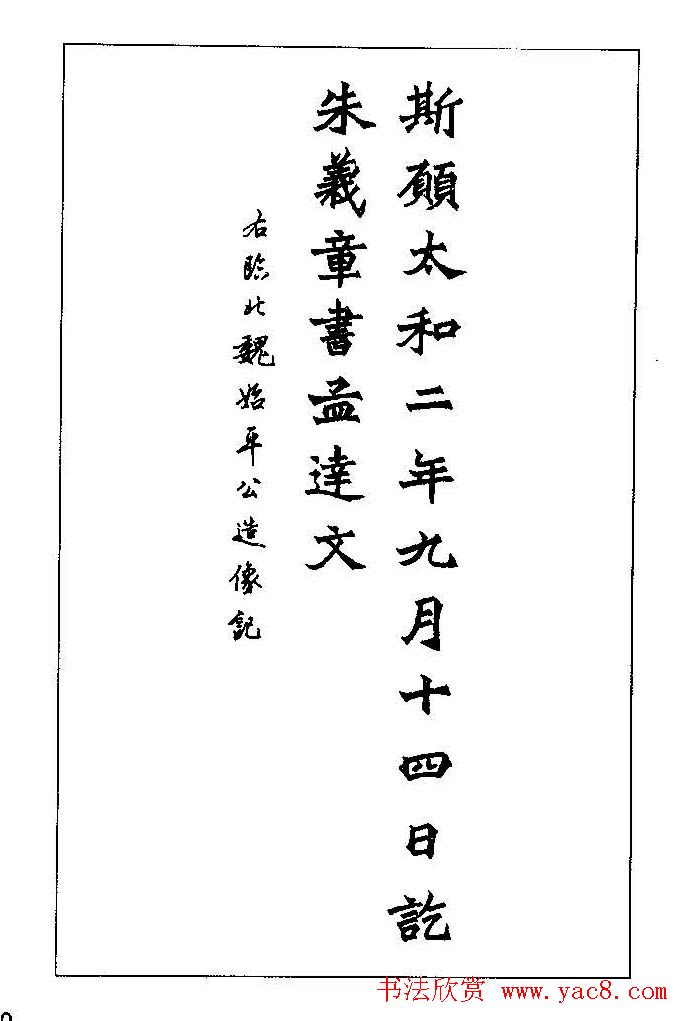 斯願太和二年九月十四日訖
朱義章書孟達文
右臨北魏始平公造像記
书法欣赏 www.yac8.com